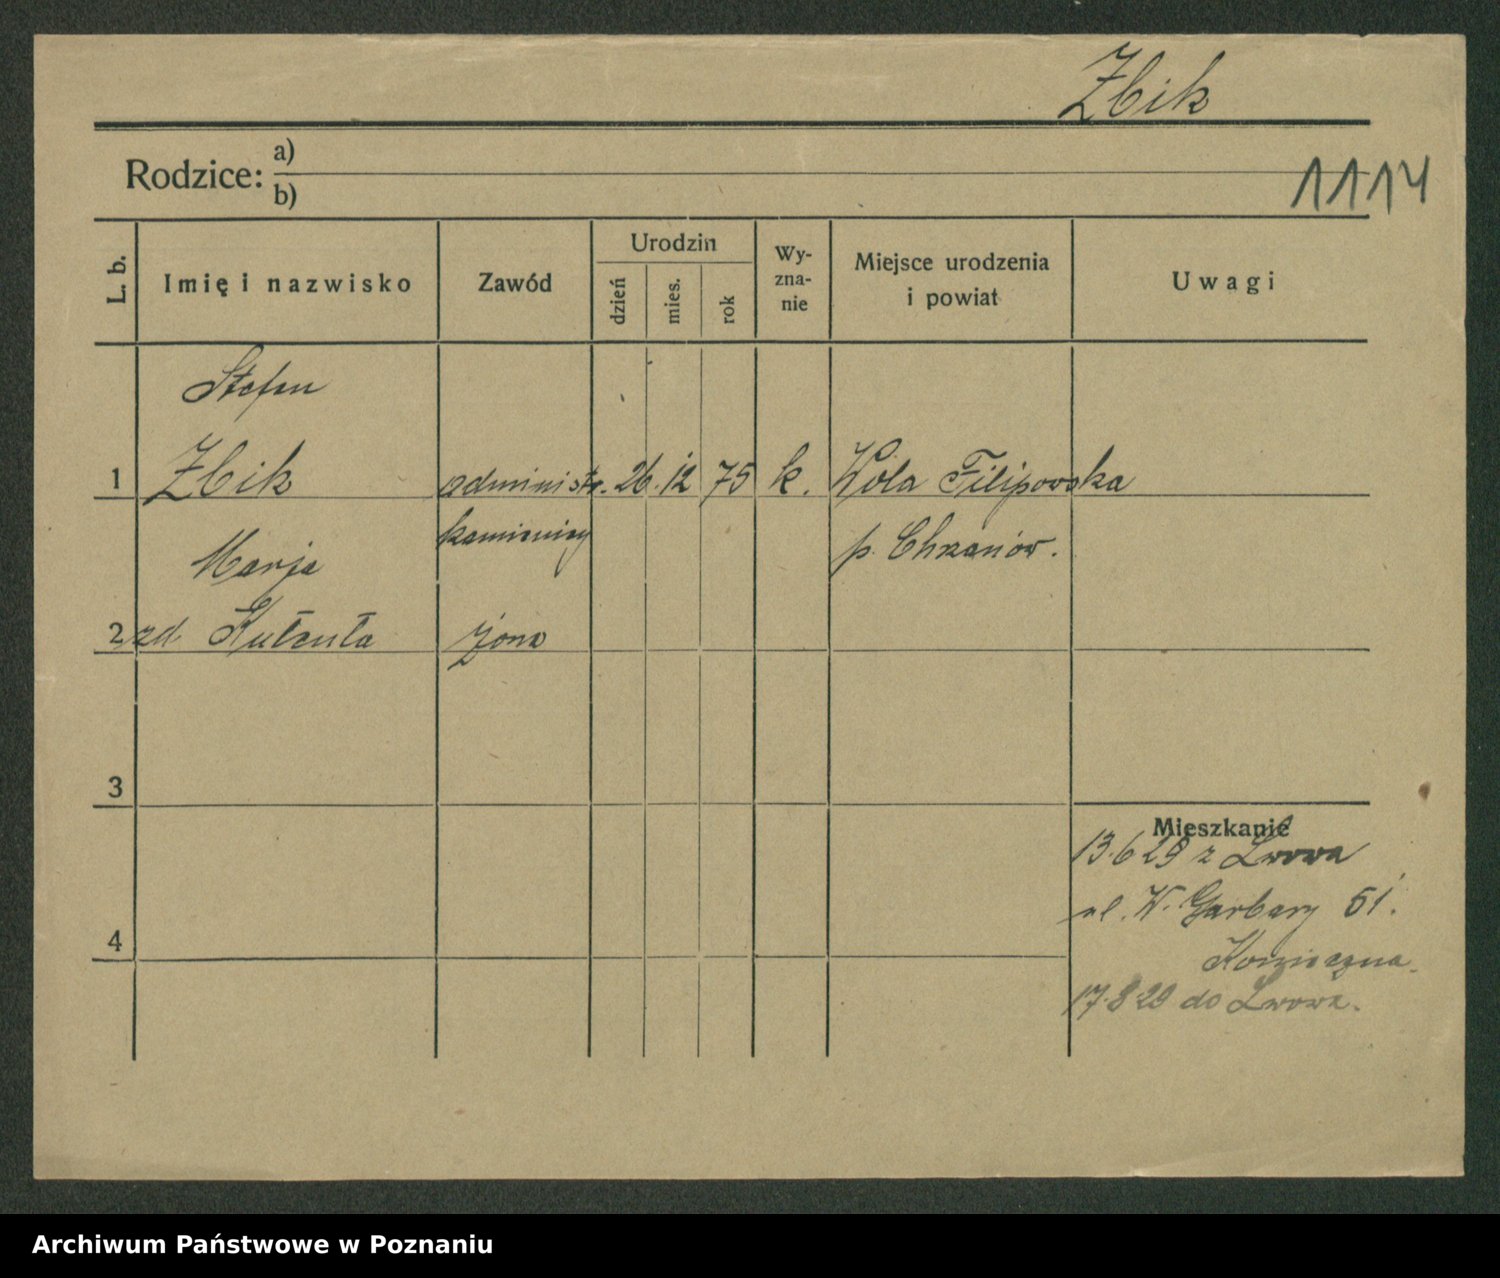 Zbik
Rodzice: a)
b)
1114
L. b.
Imię i nazwisko
Zawód
Urodzin
dzień
mies.
rok
Wy-
zna-
nie
Miejsce urodzenia
i powiat
Uwagi
Stefan
1 Zbik administr. 26. 12 75 k. Wola Filipowska
kamienicy p. Chrzanów.
Marja
2 zd żona
3
Mieszkanie
13.6 29 z Lwowa
ul. W. Garbary 51.
4
Konieczna.
17.8 29 do Lwowa.
Archiwum Państwowe w Poznaniu